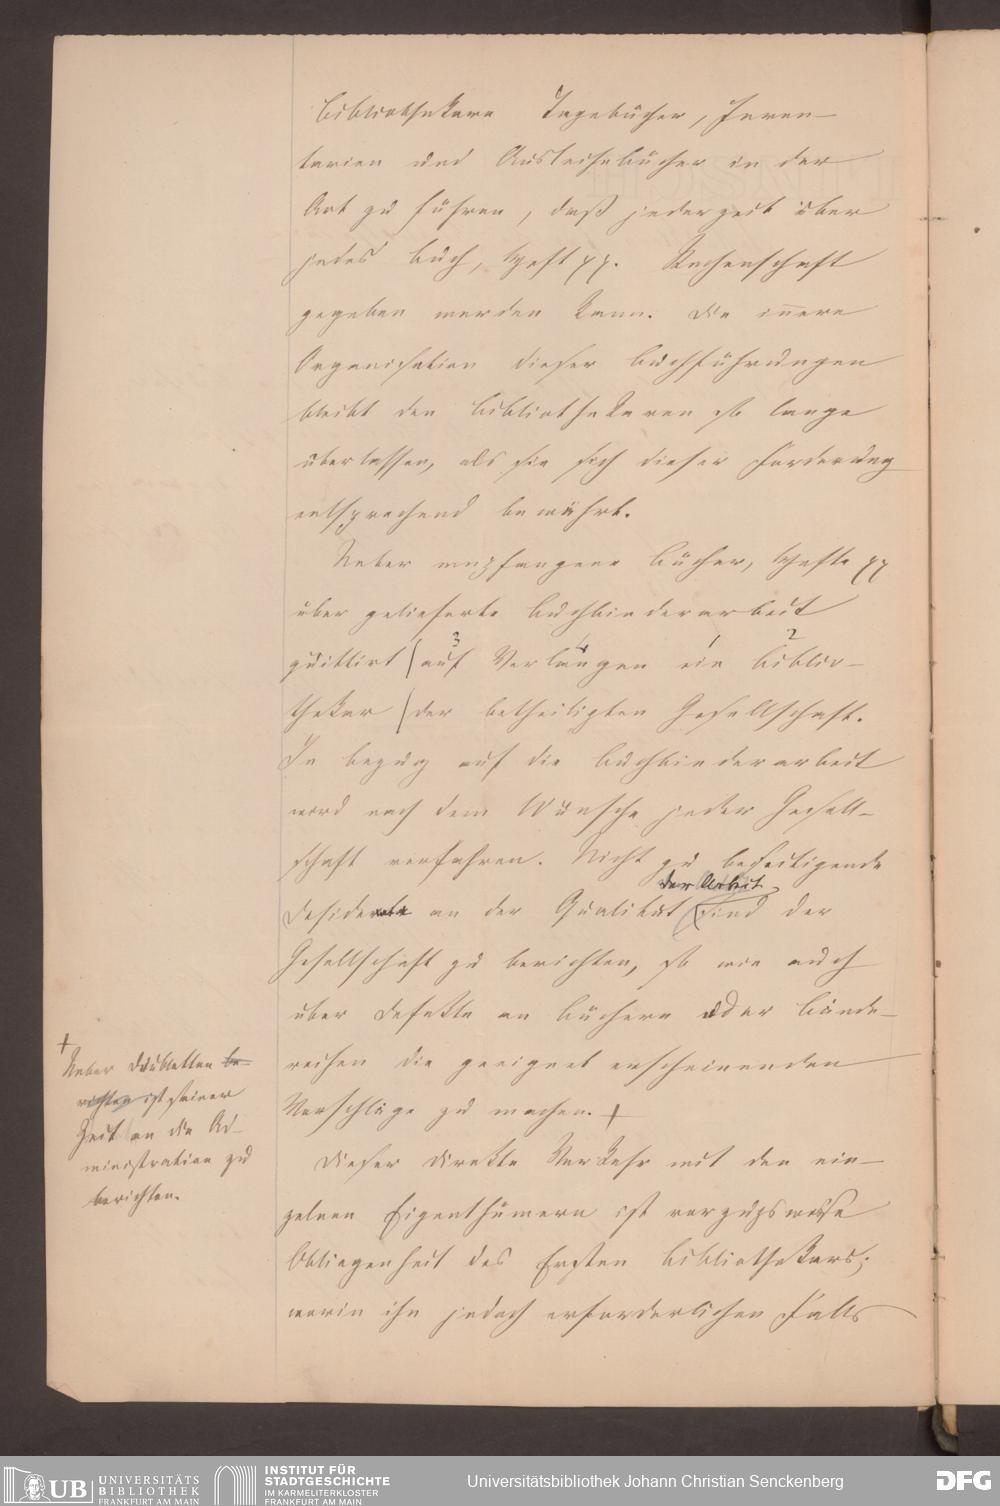 Bibliothekare Tagebücher, Inven-
tarien und Ausleihebücher in der
Art zu führen, daß jederzeit über
jedes Buch, Heft pp. Rechenschaft
gegeben werden kann. Die innere
Organisation dieser Buchführungen
bleibt den Bibliothekaren so lange
überlassen, als sie sich dieser Forderung
entsprechend bewährt.
Ueber empfangene Bücher, Hefte pp
über gelieferte Buchbinderarbeit
3 4 1 2
quittirt (auf Verlangen ein Biblio-
thekar (der betheiligten Gesellschaft.
In bezug auf die Buchbinderarbeit
wird nach dem Wunsche jeder Gesell-
schaft verfahren. Nicht zu beseitigende
der Arbeit
Desiderate an der Qualität sind der
Gesellschaft zu berichten, so wie auch
über Defekte an Büchern oder Bände-
reihen die geeignet erscheinenden
Vorschläge zu machen. +
+
Ueber Doubletten be-
richten ist seiner
Zeit an die Ad-
ministration zu
berichten.
Dieser direkte Verkehr mit den ein-
zelnen Eigenthümern ist vorzugsweise
Obliegenheit des Ersten Bibliothekars;
worin ihn jedoch erforderlichen Falls
UB UNIVERSITÄTS
BIBLIOTHEK
FRANKFURT AM MAIN
INSTITUT FÜR
STADTGESCHICHTE
IM KARMELITERKLOSTER
FRANKFURT AM MAIN
Universitätsbibliothek Johann Christian Senckenberg
DFG